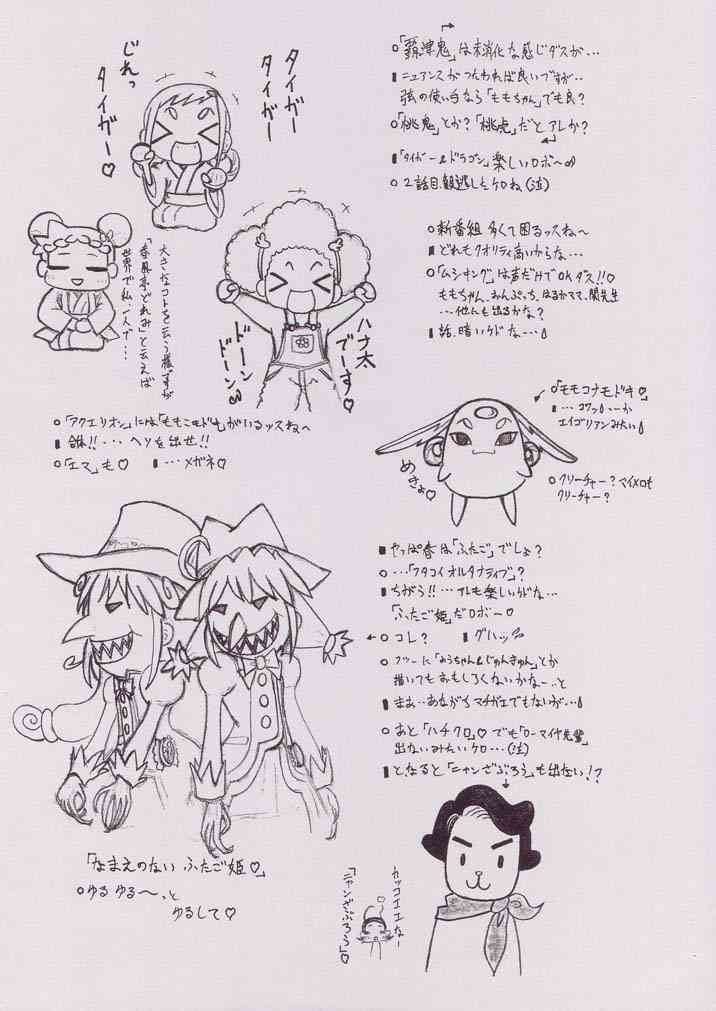 タイガー
タイガー
じれっ
タイガー♡
大きなコトを云う様ですが
「春風亭どれみ」と云えば
世界で私一人で…
ハナ太
でーす♡
ドーン
ドーン
は未消化な感じダスが…
ニュアンスがつたわれば良いですが…
弦の使い手なら「ももちゃん」でも良?
「桃鬼」とか?「桃虎」だとアレか?
「タイガー&ドラゴン」楽しいロボ〜
2話目、観逃したケロね(泣)
新番組 多くて困るッスね〜
どれもクオリティ高いからな…
「ムシキング」は声だけでOKダス!!
ももちゃん、おんぷっち、はるかママ、関先生
…他にも出るかな?
話、暗いケドな…
「アクエリオン」には「ももこモドキ」がいるッスね〜
合体!!… ヘソを出せ!!
「エマ」も♡ …メガネ♡
「モモコナモドキ♡」
エイゴリアンみたい
めきょ♡
クリーチャー?マイメロも
クリーチャー?
やっぱ春は「ふたご」でしょ?
…「フタコイ オルタナティブ」?
ちがう!!…アレも楽しいケドな…
「ふたご姫」だロボー♡
コレ? グハッ
フツーに「みうちゃん&じゅんきゅん」とか
描いてもおもしろくないかなー…と
まぁ…あながちマチガエでもないが…
あと「ハチクロ」♡でも「ローマイヤ先輩」
出ないみたいケロ…(泣)
となると「ニャンざぶろう」も出ない!?
「なまえのない ふたご姫♡」
ゆる ゆる〜…っと
ゆるして♡
カッコエエなー
「ニャンざぶろう」♡